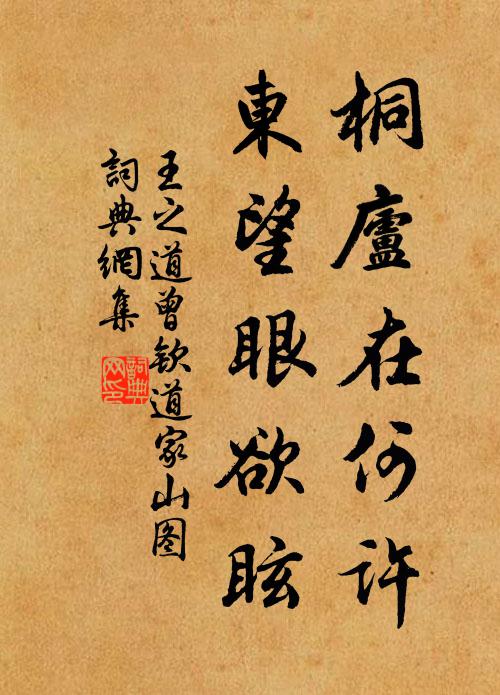 桐廬在何許
東望眼欲眩
王之道曾欽道家山图
詞典網集
詞典
网印